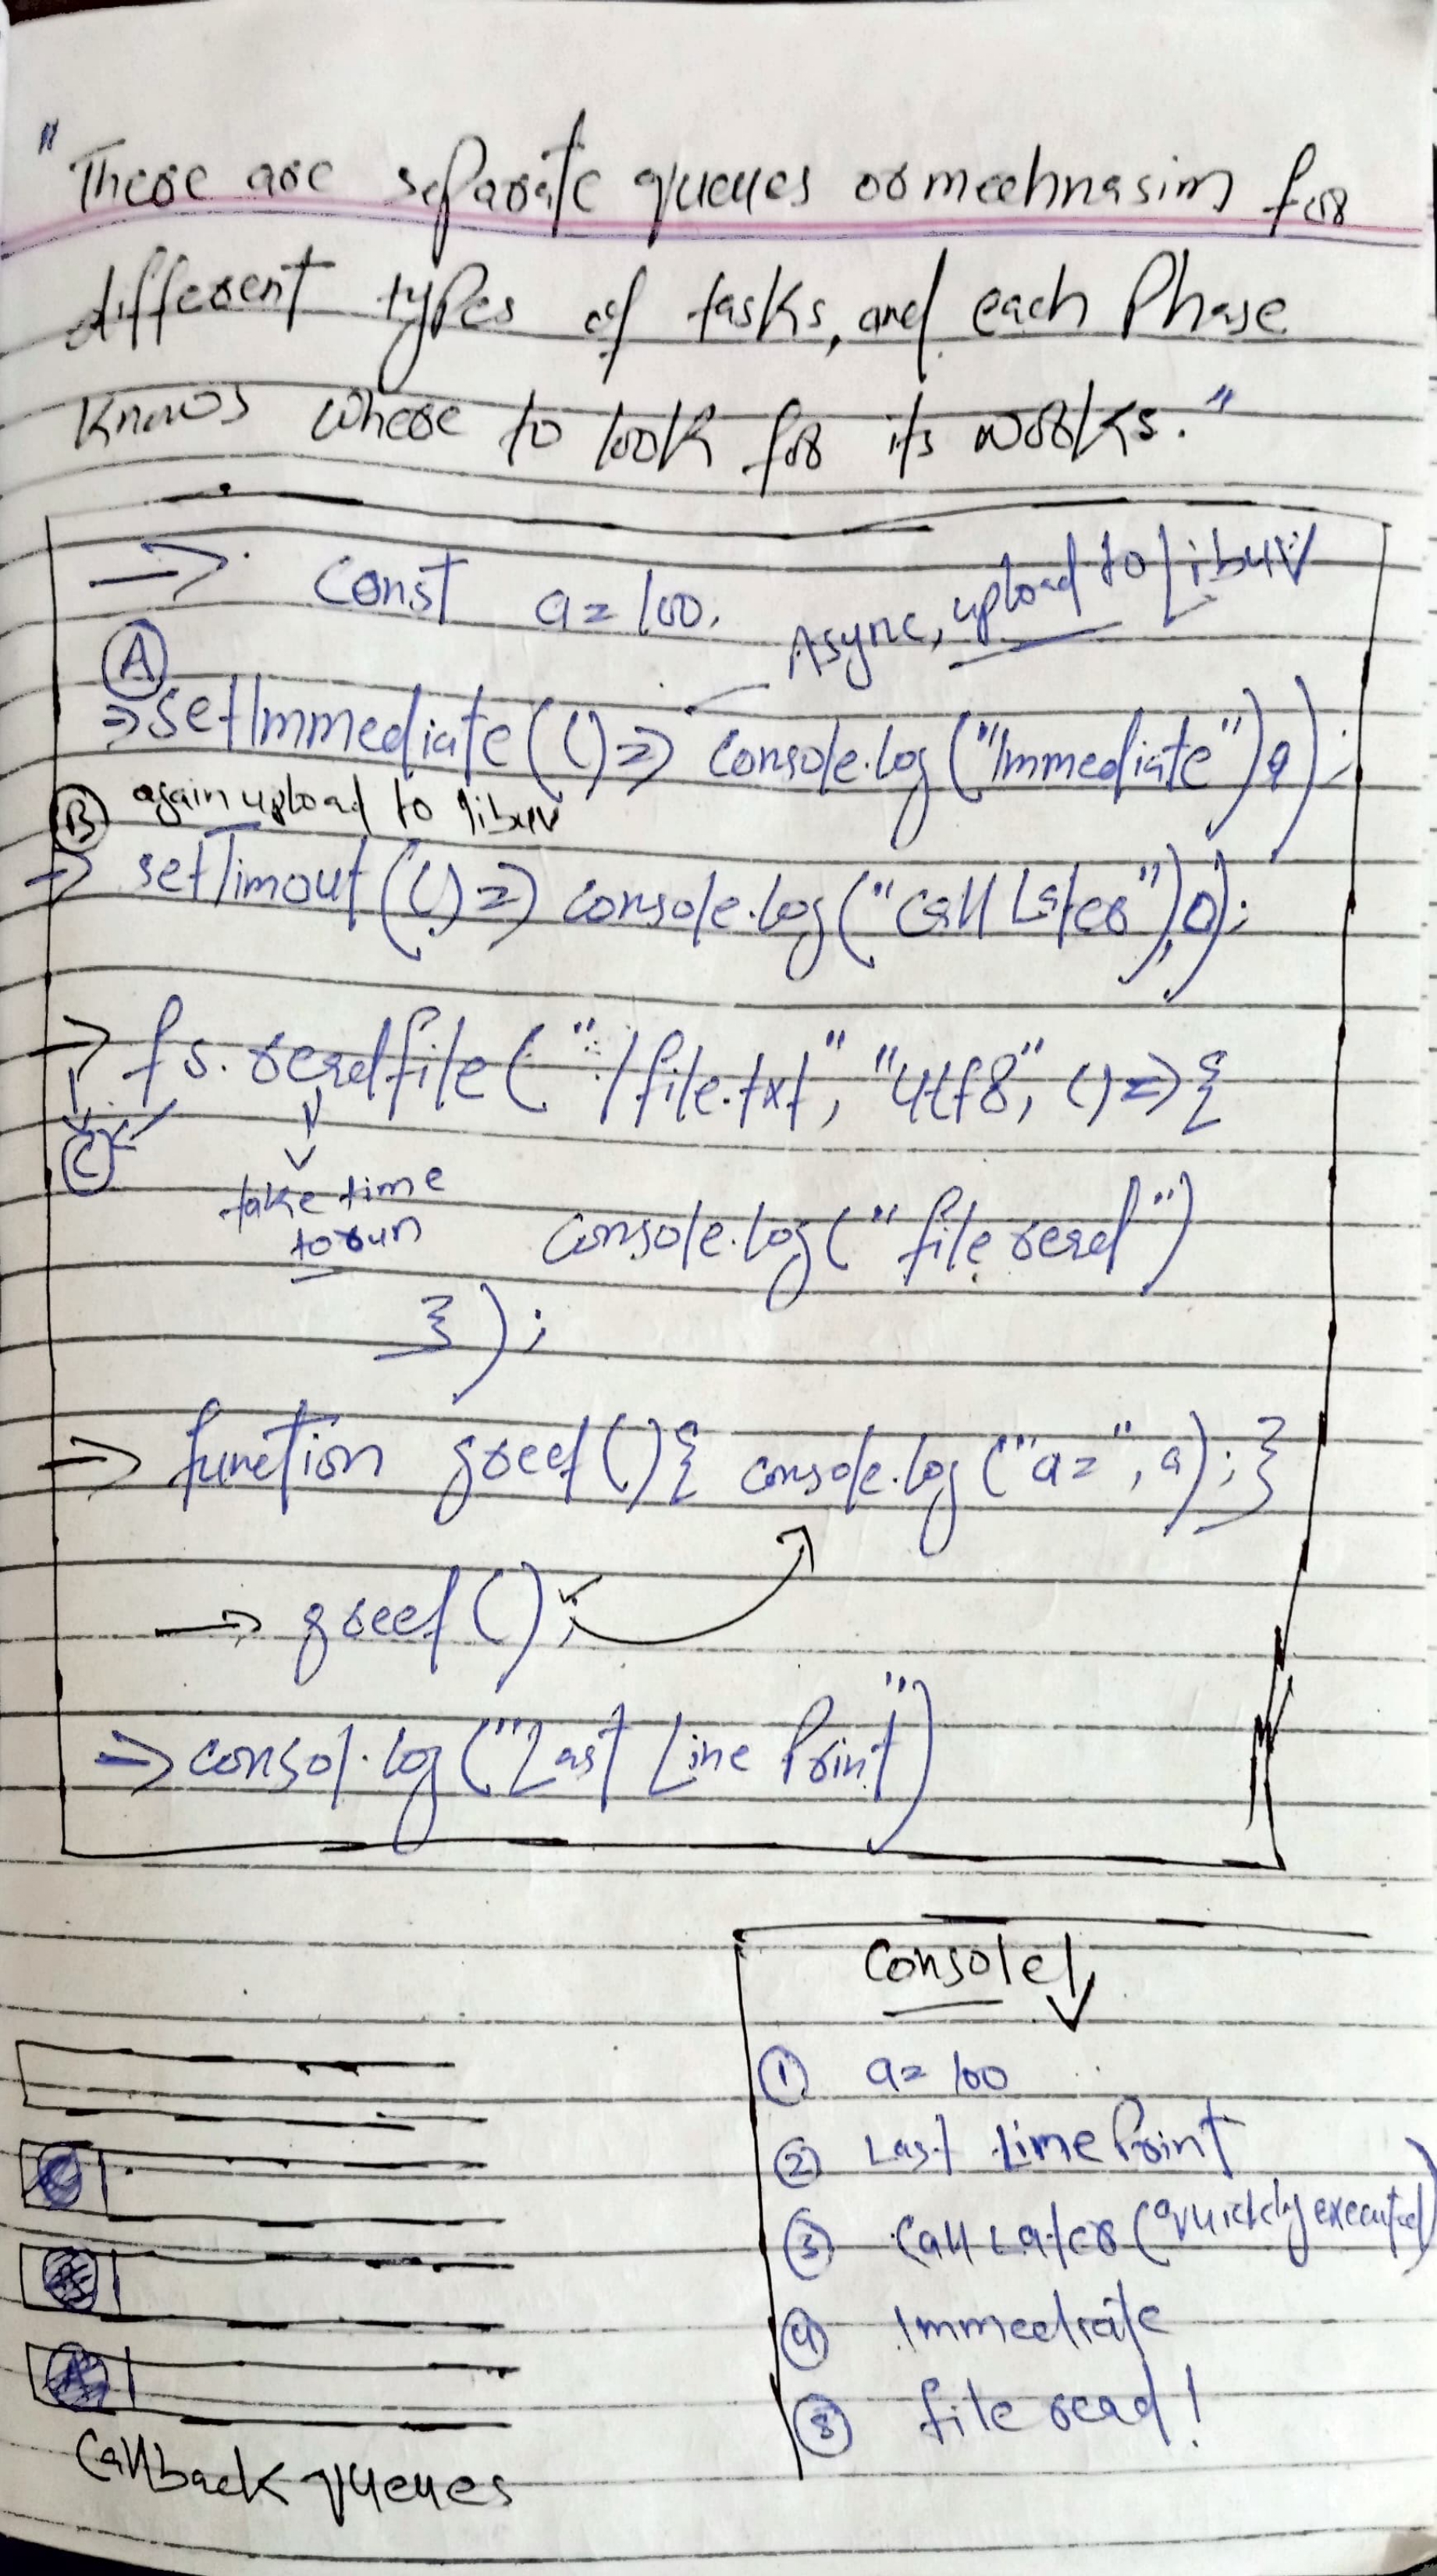 "There are separate queues or mechnasim for
different types of tasks, and each Phase
knows where to look for its works."
→ const a = 100.
Async, upload to Libuv
(A)
⇒ setImmediate(() => console.log("Immediate"));
(B) again upload to libuv
→ setTimout(() => console.log("Call Later"), 0);
→ fs.readfile("./file.txt", "utf8", () => {
(C)
take time
to run
console.log("file read")
});
→ function greet(){ console.log("a=", a); }
→ greet();
⇒ consol.log("Last Line Print")
Console ↓
① a = 100
② Last Line Print
③ Call Later (quickly executed)
④ Immediate
⑤ file read!
C
A
Callback queues